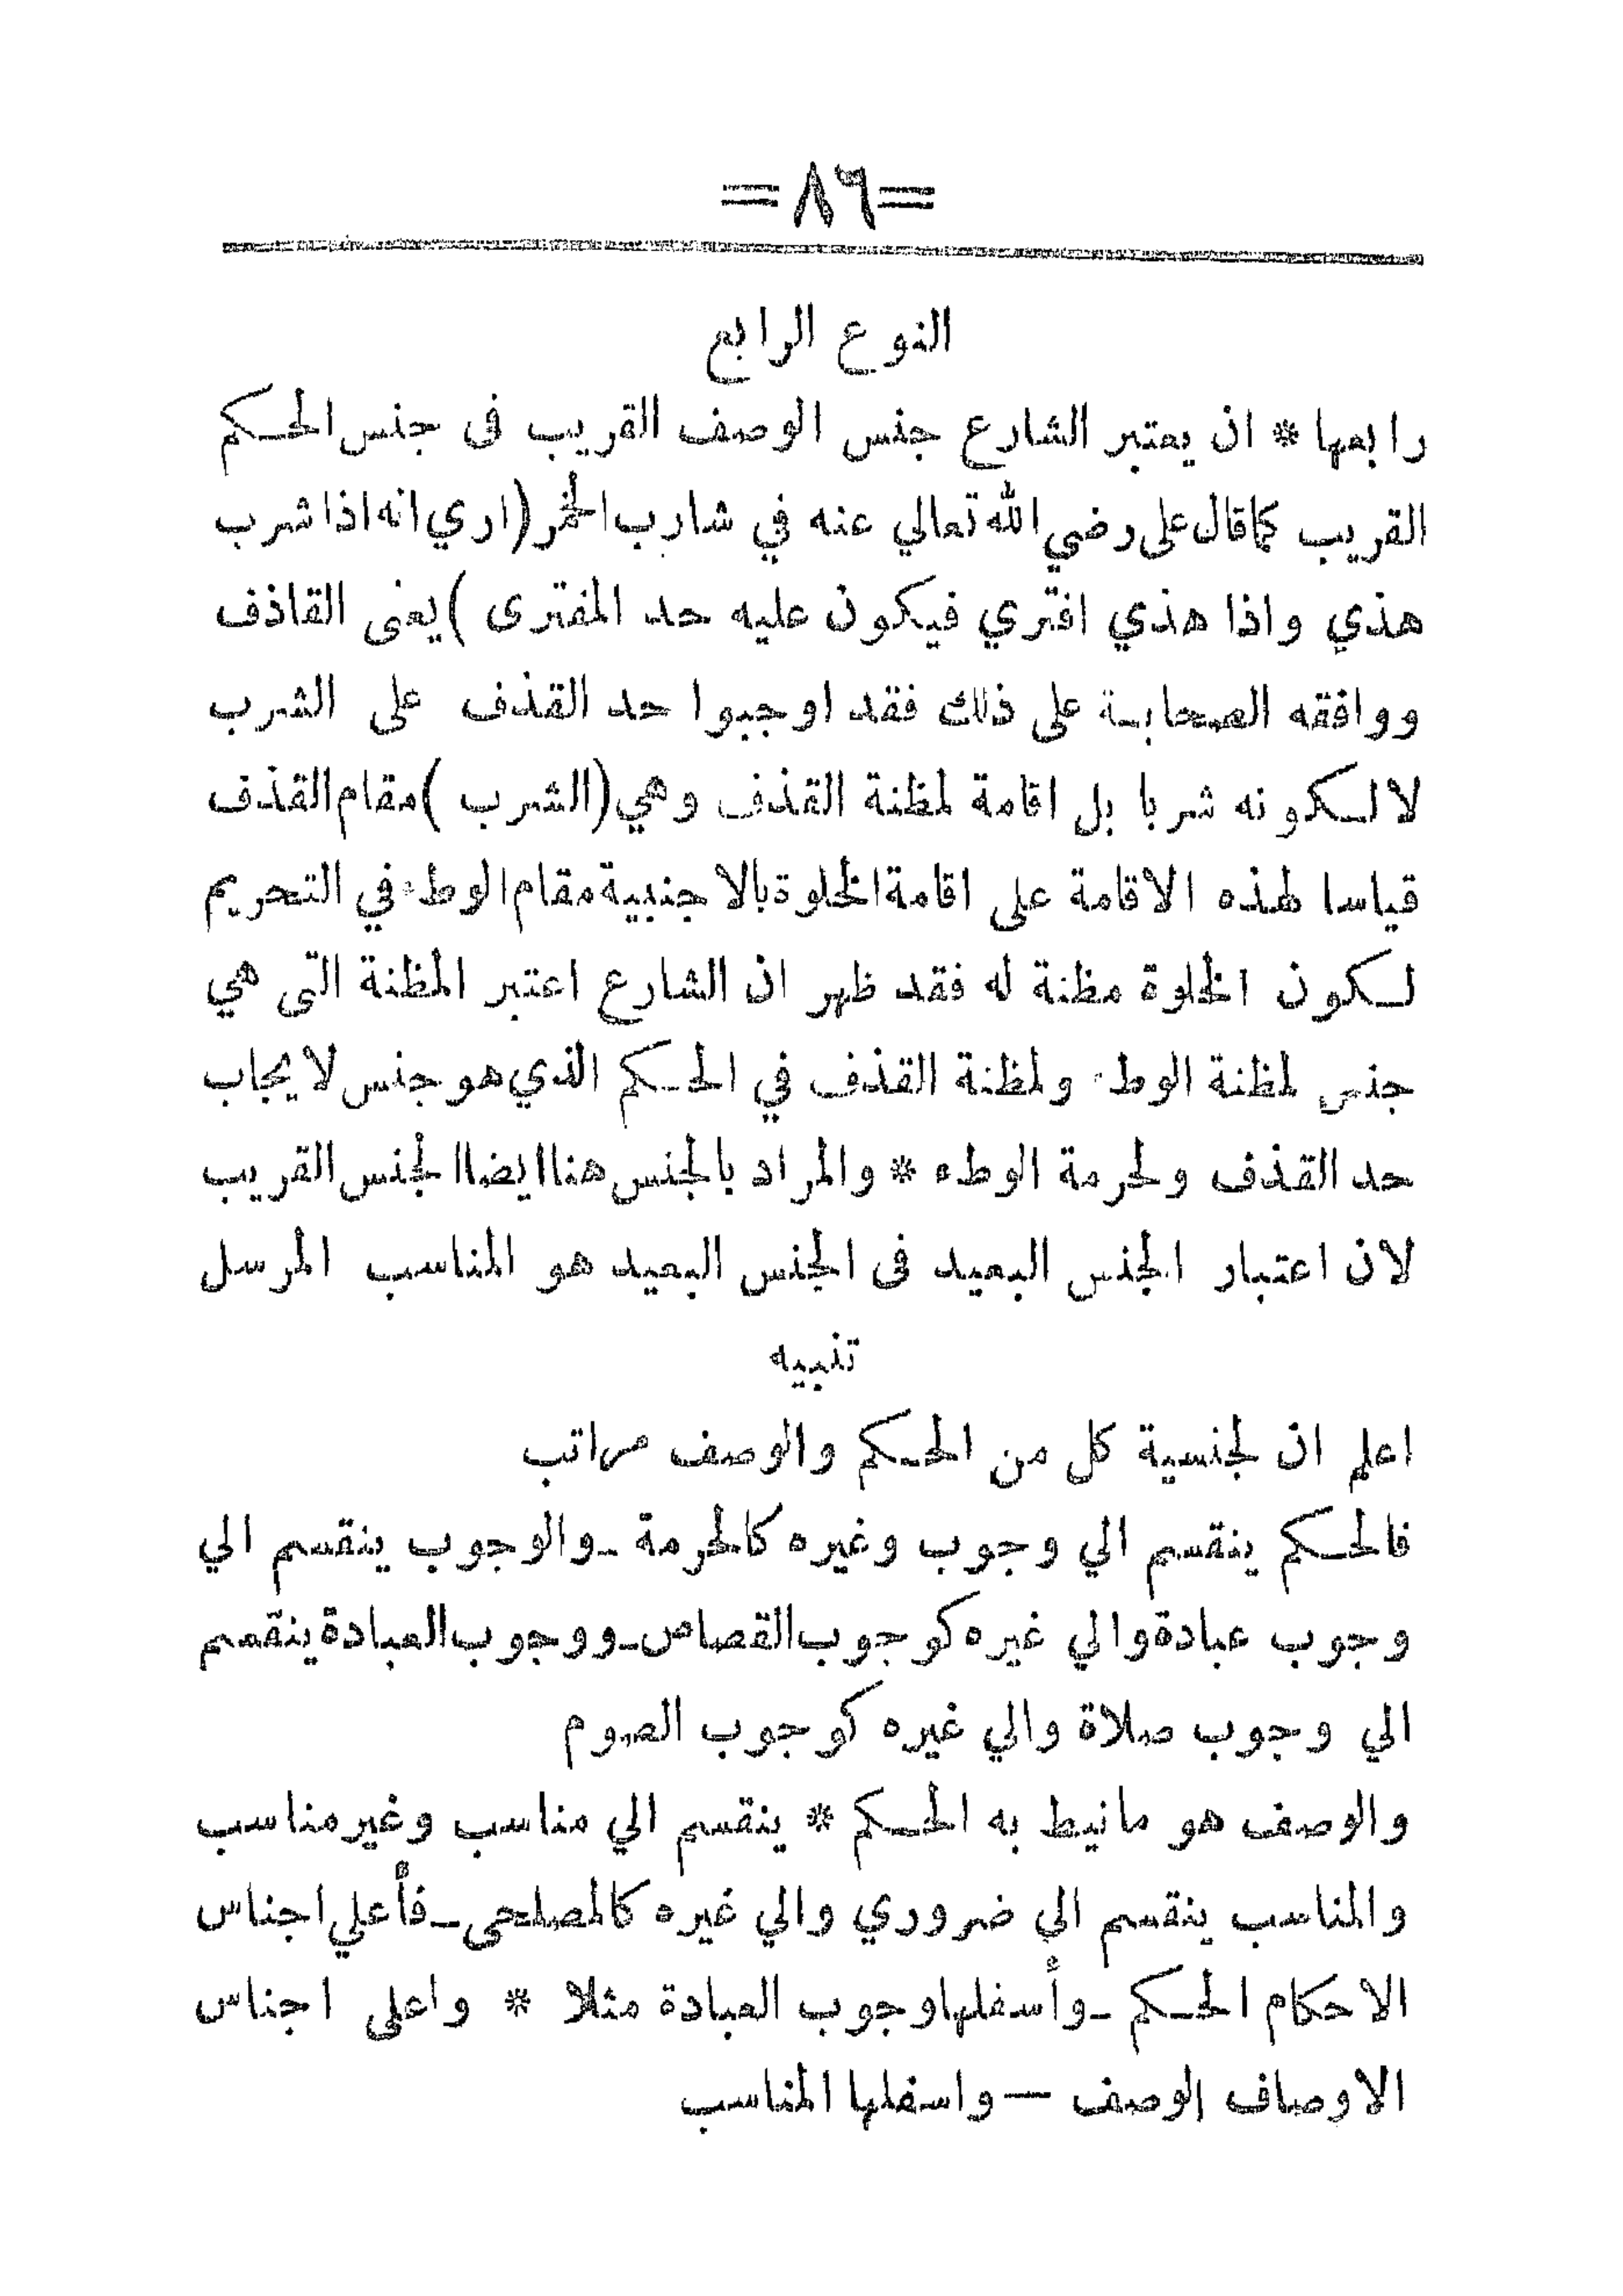 =٨٦=
النوع الرابع
رابعها * ان يعتبر الشارع جنس الوصف القريب فى جنس الحكم
القريب كما قال على رضي الله تعالي عنه في شارب الخمر (اري انه اذا شرب
هذي واذا هذي افتري فيكون عليه حد المفترى ) يعنى القاذف
ووافقه الصحابة على ذلك فقد اوجبوا حد القذف على الشرب
لا لكونه شربا بل اقامة لمظنة القذف وهي (الشرب ) مقام القذف
قياسا لهذه الاقامة على اقامة الخلوة بالاجنبية مقام الوطء في التحريم
لكون الخلوة مظنة له فقد ظهر ان الشارع اعتبر المظنة التى هي
جنس لمظنة الوطء ولمظنة القذف في الحكم الذي هو جنس لايجاب
حد القذف ولحرمة الوطء * والمراد بالجنس هنا ايضا الجنس القريب
لان اعتبار الجنس البعيد فى الجنس البعيد هو المناسب المرسل
تنبيه
اعلم ان لجنسية كل من الحكم والوصف مراتب
فالحكم ينقسم الي وجوب وغيره كالحرمة ـ والوجوب ينقسم الي
وجوب عبادة والي غيره كوجوب القصاص ـ ووجوب العبادة ينقسم
الي وجوب صلاة والي غيره كوجوب الصوم
والوصف هو مانيط به الحكم * ينقسم الي مناسب وغير مناسب
والمناسب ينقسم الي ضروري والي غيره كالمصلحى ـ فأعلي اجناس
الاحكام الحكم ـ وأسفلها وجوب العبادة مثلا * واعلى اجناس
الاوصاف الوصف — واسفلها المناسب